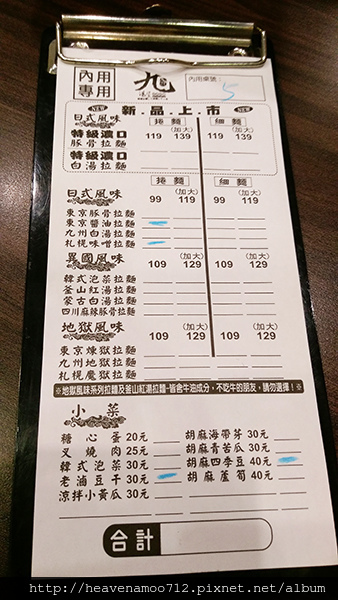 內用專用 九 內用桌號： 5
NEW 新.品.上.市 NEW
日式風味 捲麵 (加大) 細麵 (加大)
特級濃口豚骨拉麵 119 139 119 139
特級濃口白湯拉麵
日式風味 捲麵 99 (加大)119 細麵 99 (加大)119
東京豚骨拉麵
東京醬油拉麵
九州白湯拉麵
札幌味噌拉麵
異國風味 109 (加大)129 109 (加大)129
韓式泡菜拉麵
釜山紅湯拉麵
蒙古白湯拉麵
四川麻辣豚骨拉麵
地獄風味 109 (加大)129 109 (加大)129
東京煉獄拉麵
九州地獄拉麵
札幌魔獄拉麵
※地獄風味系列拉麵及釜山紅湯拉麵-皆含牛油成分，不吃牛的朋友，請勿選擇！※
小菜
糖心蛋20元 胡麻海帶芽30元
叉燒肉25元 胡麻青苦瓜30元
韓式泡菜30元 胡麻四季豆40元
老滷豆干30元 胡麻蘆筍40元
涼拌小黃瓜30元
合計
http://heavenamoo712.pixnet.net/album